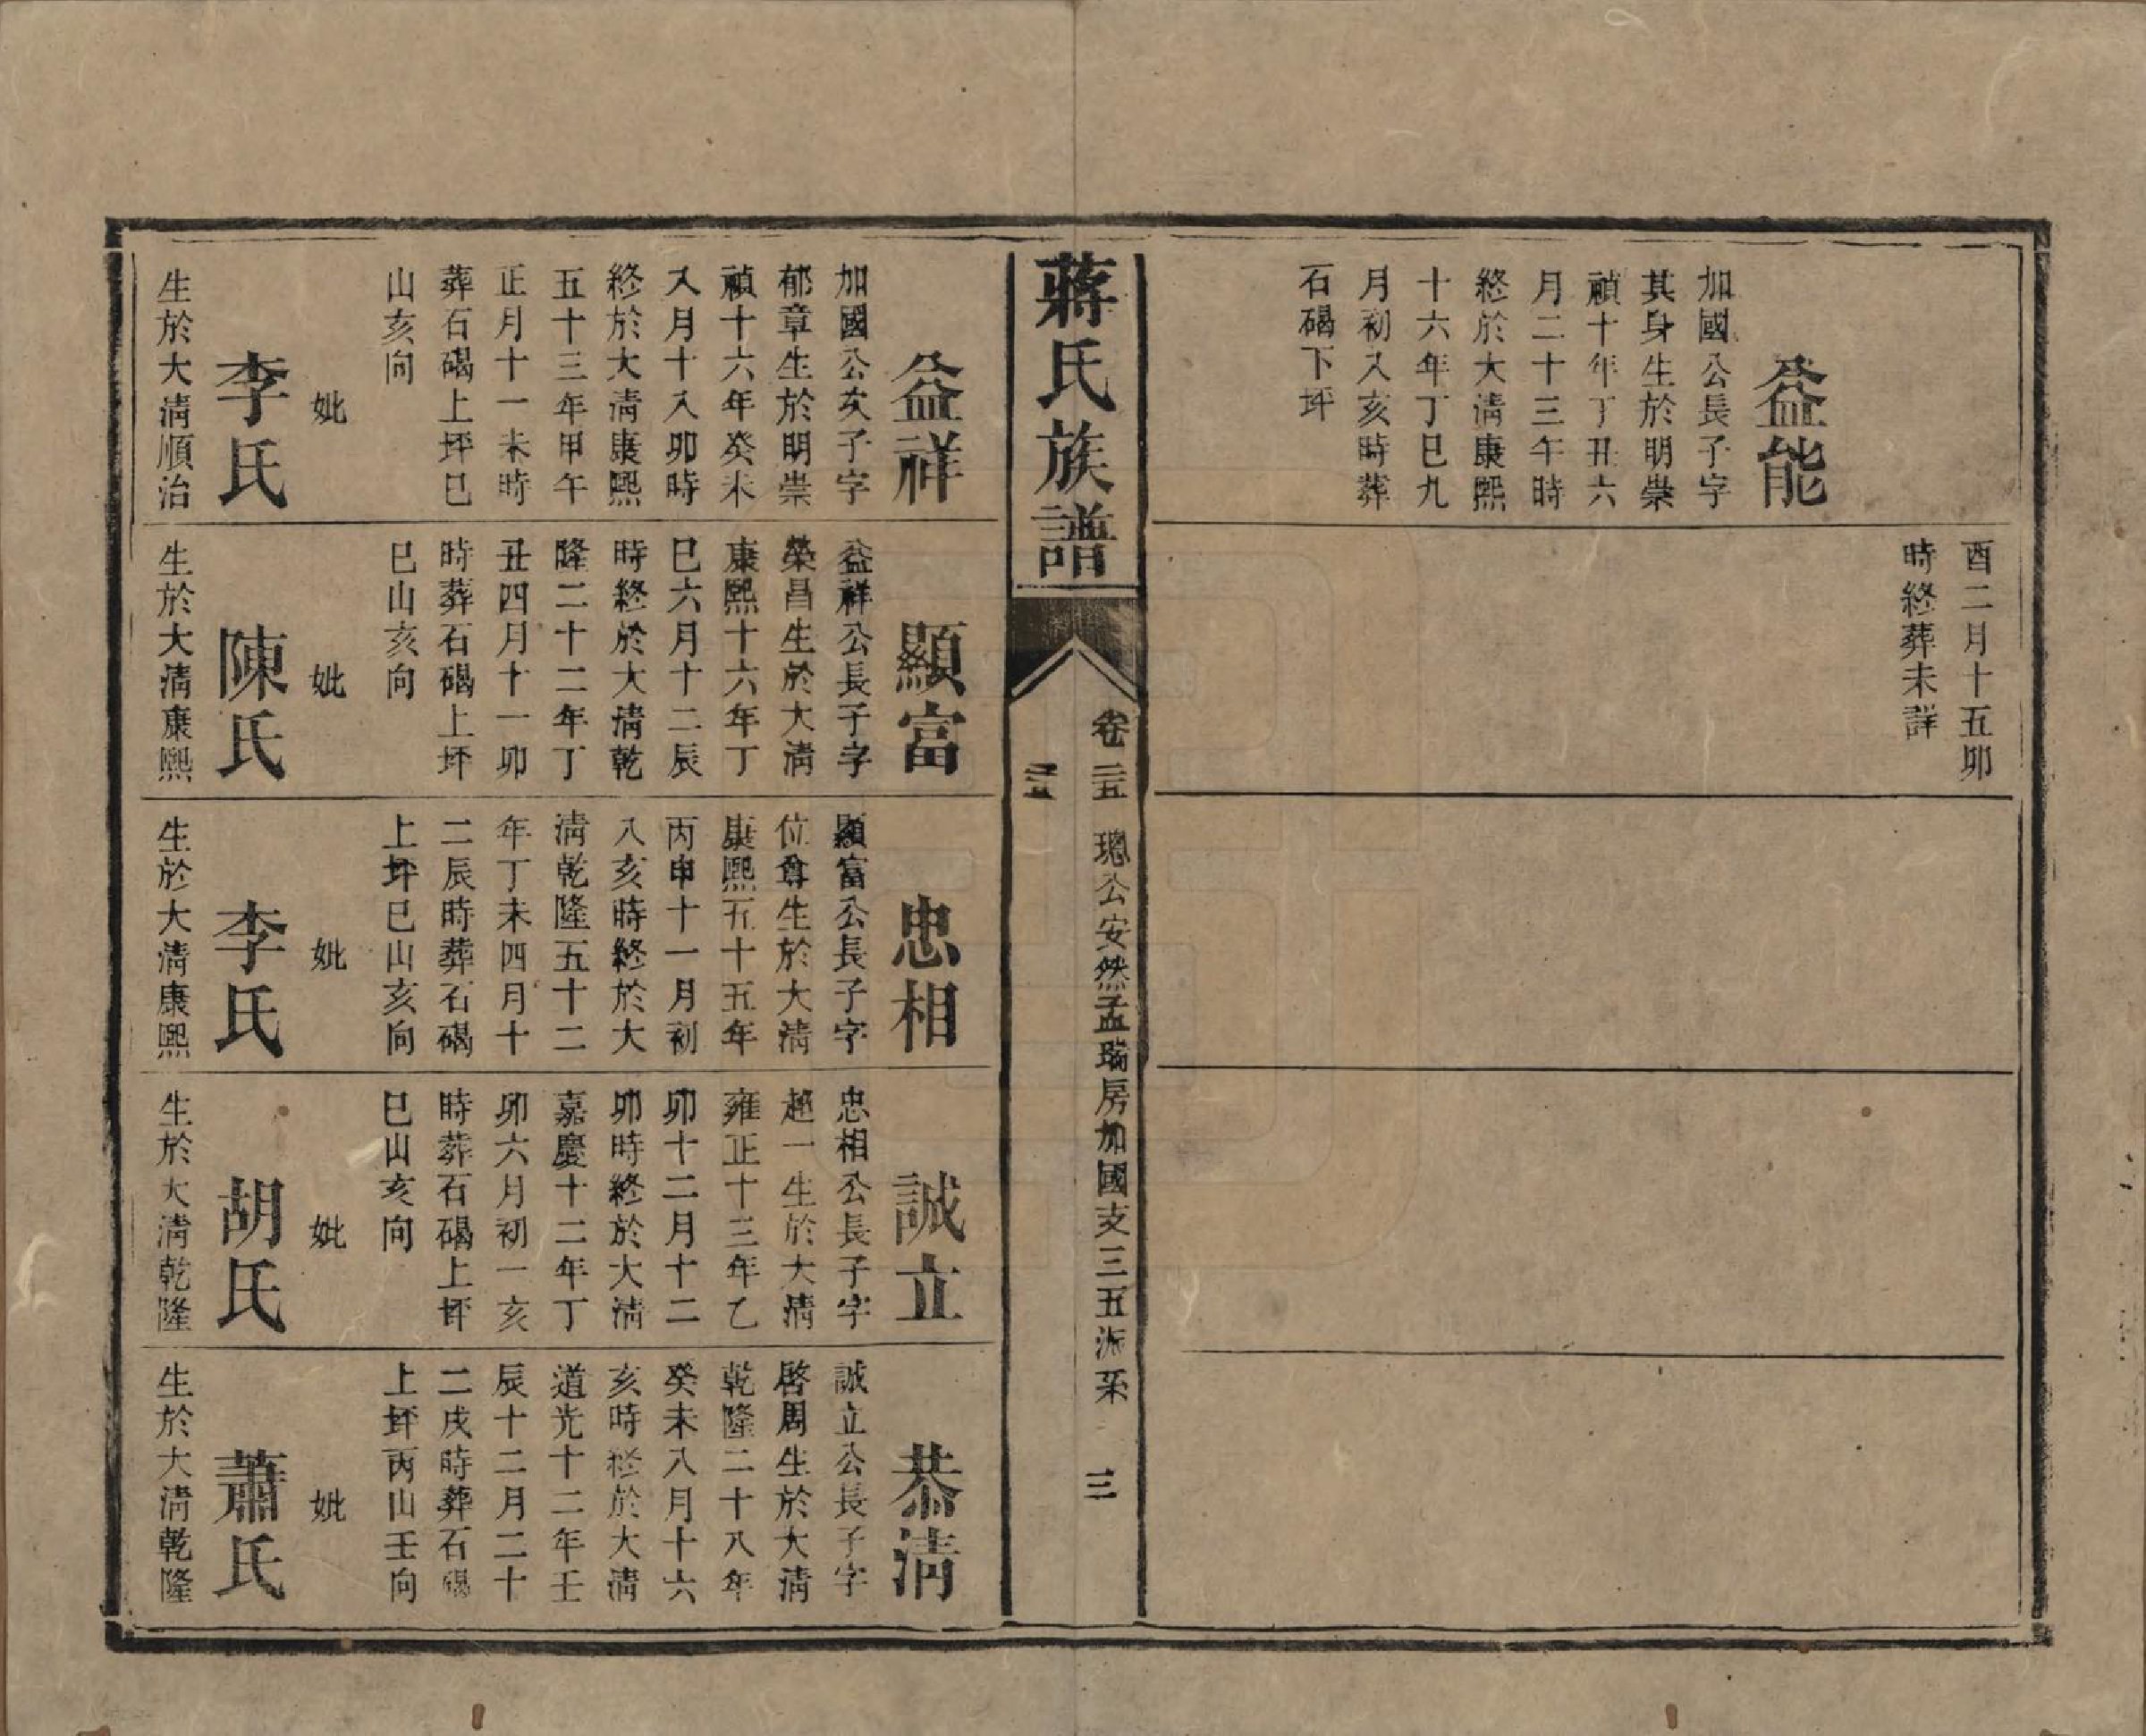 益能
加國公長子字
其身生於明崇
禎十年丁丑六
月二十三午時
終於大清康熙
十六年丁巳九
月初八亥時葬
石碣下坪
酉二月十五卯
時終葬未詳
蔣氏族譜
卷三五
璁公安然孟瑞房加國支三五派系
三
三五
益祥
加國公次子字
郁章生於明崇
禎十六年癸未
八月十八卯時
終於大清康熙
五十三年甲午
正月十一未時
葬石碣上坪巳
山亥向
妣
李氏
生於大清順治
顯富
益祥公長子字
榮昌生於大清
康熙十六年丁
巳六月十二辰
時終於大清乾
隆二十二年丁
丑四月十一卯
時葬石碣上坪
巳山亥向
妣
陳氏
生於大清康熙
忠相
顯富公長子字
位尊生於大清
康熙五十五年
丙申十一月初
八亥時終於大
清乾隆五十二
年丁未四月十
二辰時葬石碣
上坪巳山亥向
妣
李氏
生於大清康熙
誠立
忠相公長子字
越一生於大清
雍正十三年乙
卯十二月十二
卯時終於大清
嘉慶十二年丁
卯六月初一亥
時葬石碣上坪
巳山亥向
妣
胡氏
生於大清乾隆
恭清
誠立公長子字
啓周生於大清
乾隆二十八年
癸未八月十六
亥時終於大清
道光十二年壬
辰十二月二十
二戌時葬石碣
上坪丙山壬向
妣
蕭氏
生於大清乾隆